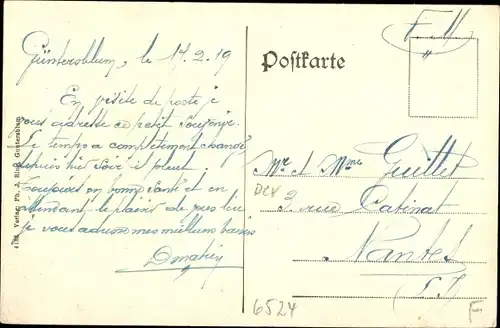 Güntersblum, le 17.2.19
En visite de poste je
vous adresse ce petit Souvenir.
Le temps a complètement changé
depuis hier soir il pleut.
Toujours en bonne santé et en
attendant le plaisir de vous lire
je vous adresse mes meilleurs baisers
Postkarte
F. M
"
Mr et Mme Guillet
3 rue Catinat
Nantes
L. I
6524
F
4188 Verlag: Ph. J. Guntersblum